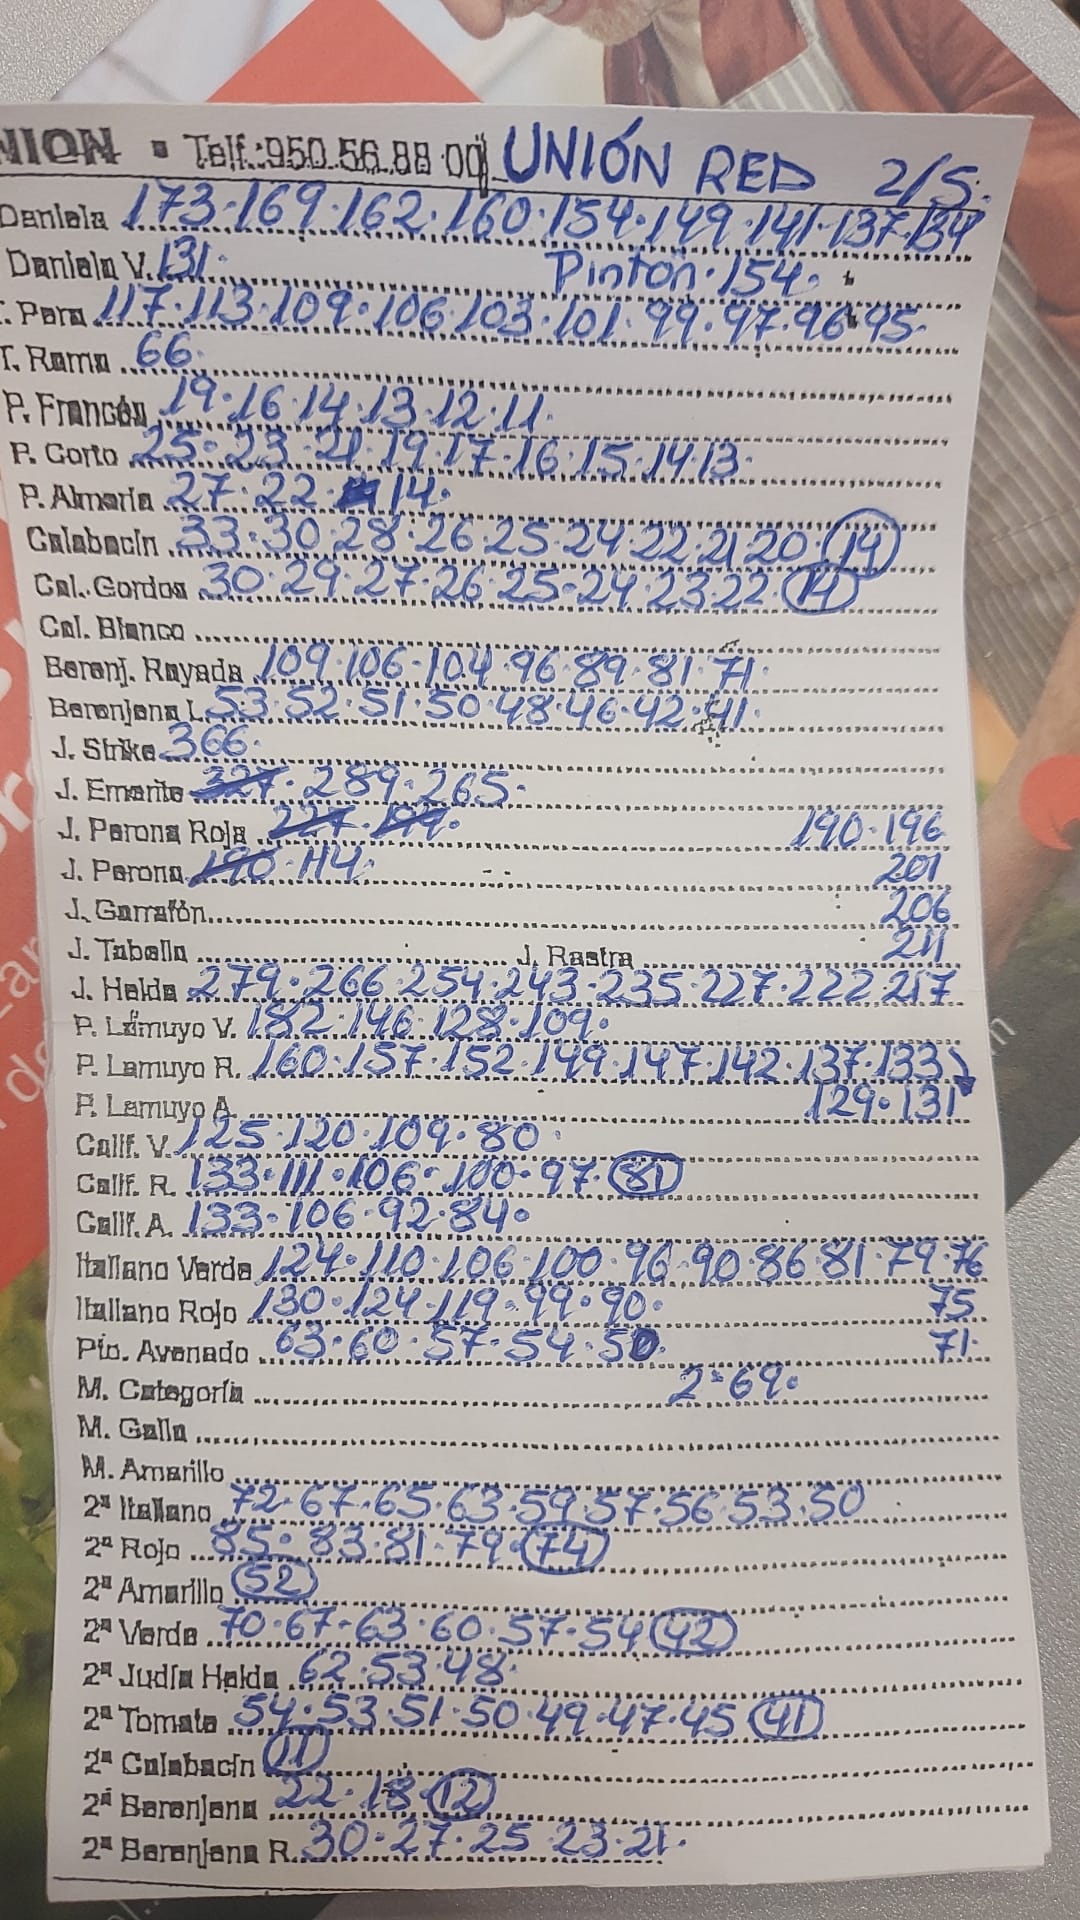 NION - Telf.:950.56.88 00 UNIÓN RED 2/5.
Daniela 173·169·162·160·154·149·141·137·134
Daniela V. 131. Pinton·154.
T. Pera 117·113·109·106·103·101·99·97·96·95·
T. Rama 66.
P. Francés 19·16·14·13·12·11.
P. Corto 25·23·21·19·17·16·15·14·13.
P. Almería 27·22·14.
Calabacín 33·30·28·26·25·24·22·21·20·14
Cal. Gordos 30·29·27·26·25·24·23·22·14
Cal. Blanco
Berenj. Rayada 109·106·104·96·89·81·71.
Berenjena L. 53·52·51·50·48·46·42·41.
J. Strike 366.
J. Emerite 327·289·265.
J. Perona Roja 227·199· 190·196
J. Perona 190·114. 201
J. Garrafón 206
J. Tabella J. Rastra 211
J. Helda 279·266·254·243·235·227·222·217
P. Lamuyo V. 182·146·128·109.
P. Lamuyo R. 160·157·152·149·147·142·137·133
P. Lamuyo A. 129·131
Calif. V. 125·120·109·80.
Calif. R. 133·111·106·100·97·81
Calif. A. 133·106·92·84.
Italiano Verde 124·110·106·100·96·90·86·81·79·76
Italiano Rojo 130·124·119·99·90· 75
Pto. Avenado 63·60·57·54·50. 71.
M. Categoría 2ª69.
M. Galia
M. Amarillo
2ª Italiano 72·67·65·63·59·57·56·53·50
2ª Rojo 85·83·81·79·74
2ª Amarillo 52
2ª Verde 70·67·63·60·57·54 42
2ª Judía Helda 62·53·48.
2ª Tomate 54·53·51·50·49·47·45 41
2ª Calabacín 11
2ª Berenjena 22·18·12
2ª Berenjena R. 30·27·25·23·21.